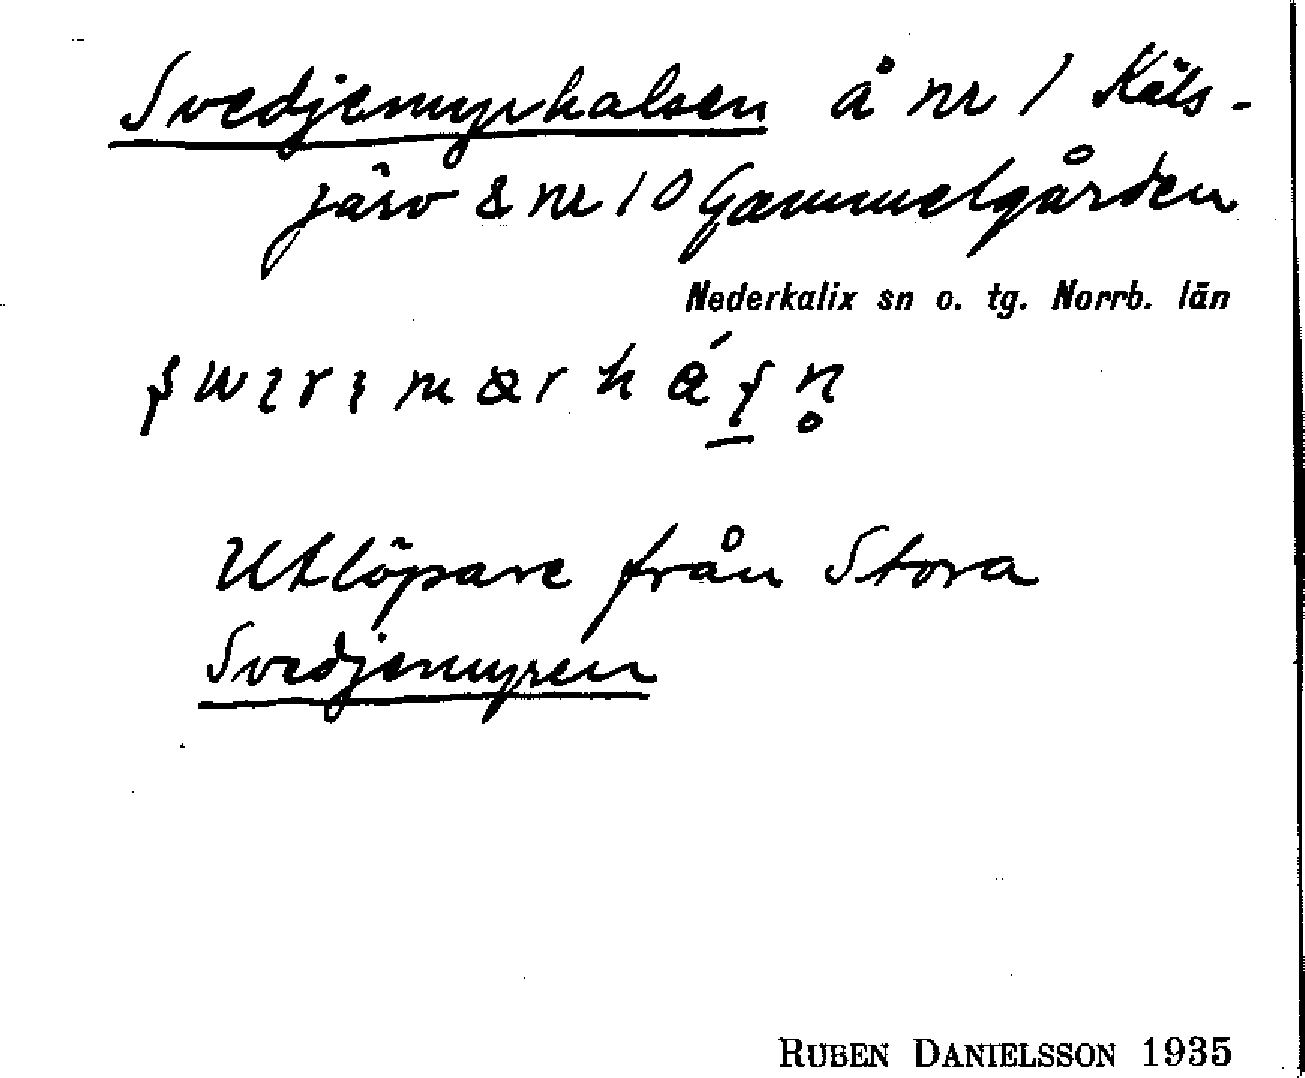 Svedjemyrhalsen å nr 1 Käls-
järv & nr 10 Gammelgården
Nederkalix sn o. tg. Norrb. län
Utlöpare från Stora
Svedjemyren
RUBEN DANIELSSON 1935